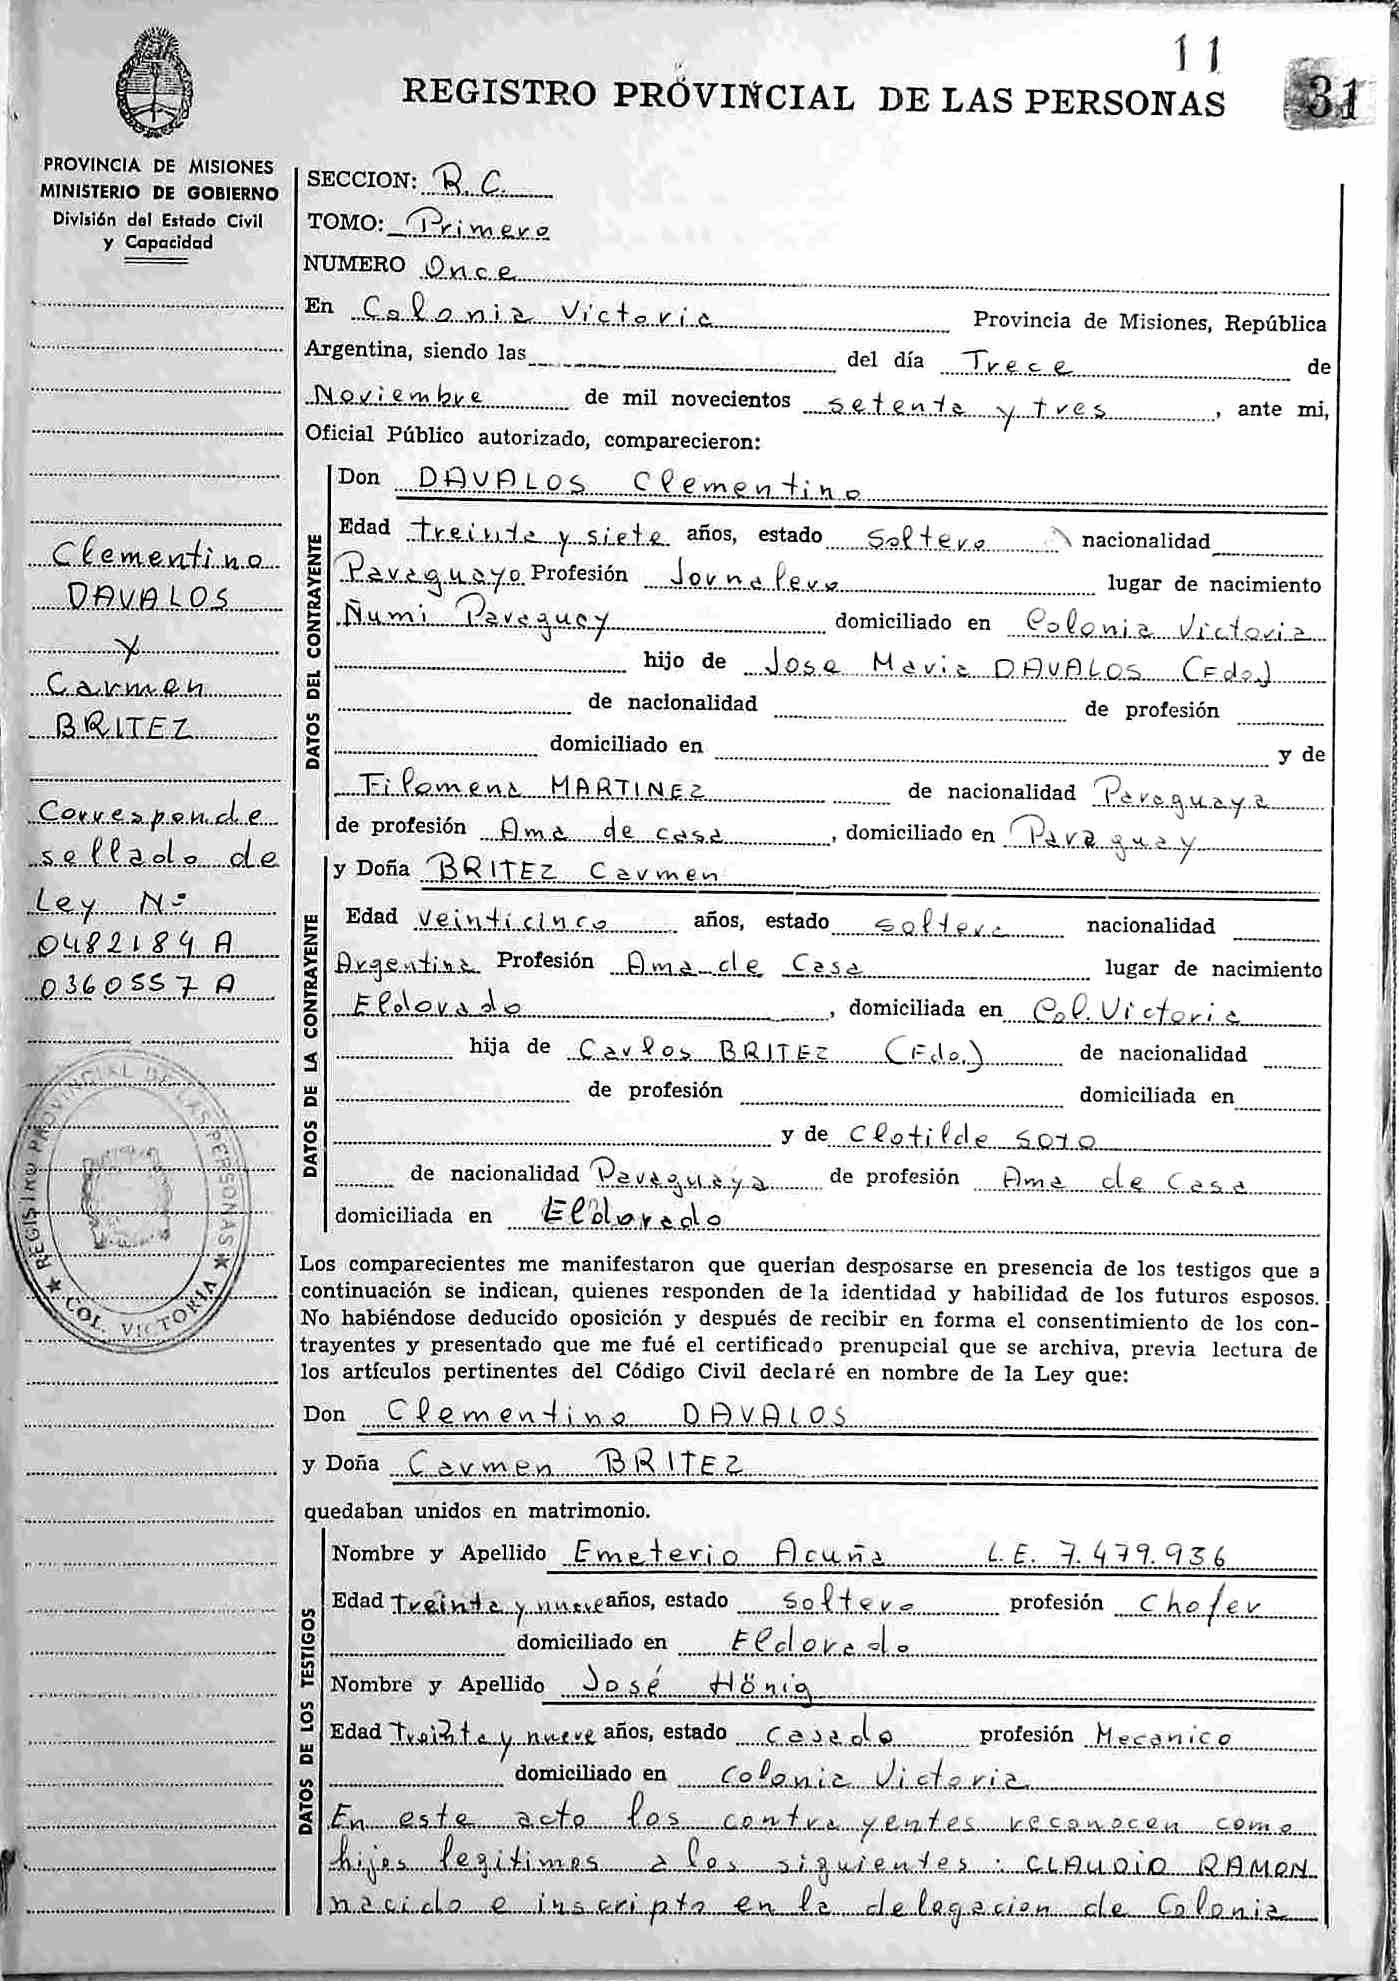 11
REGISTRO PROVINCIAL DE LAS PERSONAS
31
PROVINCIA DE MISIONES
MINISTERIO DE GOBIERNO
División del Estado Civil
y Capacidad
Clementino
DAVALOS
y
Carmen
BRITEZ
Corresponde
sellado de
Ley Nº
0482184 A
0360557 A
REGISTRO PROVINCIAL DE LAS PERSONAS
COL. VICTORIA
SECCION: R.C.
TOMO: Primero
NUMERO Once
En Colonia Victoria Provincia de Misiones, República
Argentina, siendo las del día Trece de
Noviembre de mil novecientos setenta y tres, ante mi,
Oficial Público autorizado, comparecieron:
DATOS DEL CONTRAYENTE
Don DAVALOS Clementino
Edad treinta y siete años, estado Soltero nacionalidad
Paraguayo Profesión Jornalero lugar de nacimiento
Ñumi Paraguay domiciliado en Colonia Victoria
hijo de Jose Maria DAVALOS (Fdo.)
de nacionalidad de profesión
domiciliado en y de
Filomena MARTINEZ de nacionalidad Paraguaya
de profesión Ama de casa, domiciliado en Paraguay
DATOS DE LA CONTRAYENTE
y Doña BRITEZ Carmen
Edad Veinticinco años, estado soltera nacionalidad
Argentina Profesión Ama de Casa lugar de nacimiento
Eldorado, domiciliada en Col. Victoria
hija de Carlos BRITEZ (Fdo.) de nacionalidad
de profesión domiciliada en
y de Clotilde SOTO
de nacionalidad Paraguaya de profesión Ama de Casa
domiciliada en Eldorado
Los comparecientes me manifestaron que querían desposarse en presencia de los testigos que a
continuación se indican, quienes responden de la identidad y habilidad de los futuros esposos.
No habiéndose deducido oposición y después de recibir en forma el consentimiento de los con-
trayentes y presentado que me fué el certificado prenupcial que se archiva, previa lectura de
los artículos pertinentes del Código Civil declaré en nombre de la Ley que:
Don Clementino DAVALOS
y Doña Carmen BRITEZ
quedaban unidos en matrimonio.
DATOS DE LOS TESTIGOS
Nombre y Apellido Emeterio Acuña L.E. 7.479.936
Edad Treinta y nueve años, estado soltero profesión Chofer
domiciliado en Eldorado
Nombre y Apellido José Hönig
Edad Treinta y nueve años, estado Casado profesión Mecanico
domiciliado en Colonia Victoria
En este acto los contrayentes reconocen como
hijos legitimos a los siguientes: CLAUDIO RAMON
nacido e inscripto en la delegacion de Colonia